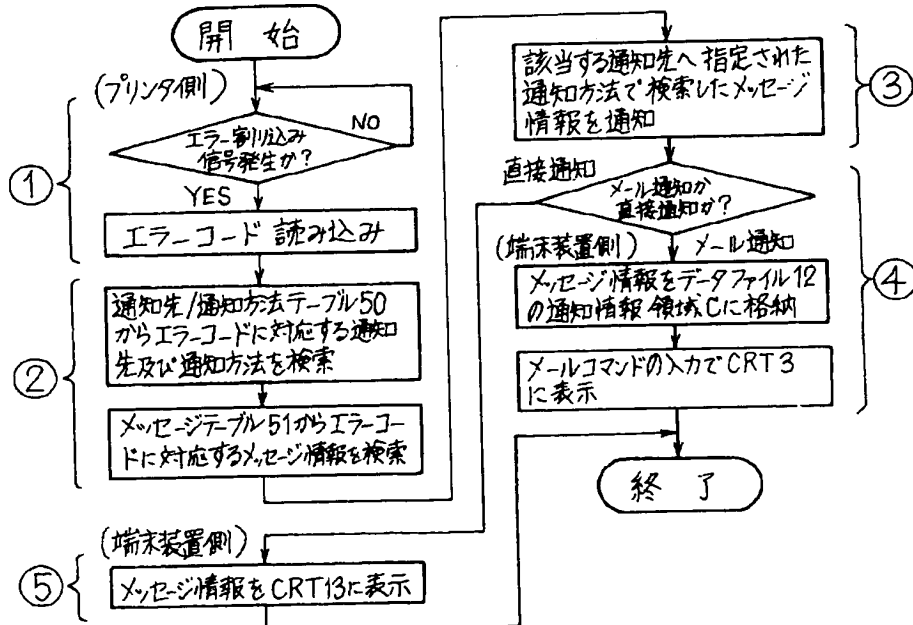 開 始
(プリンタ側)
①
エラー割り込み
信号発生か?
NO
YES
エラーコード 読み込み
②
通知先/通知方法テーブル50
からエラーコードに対応する通知
先及び通知方法を検索
メッセージテーブル51からエラーコー
ドに対応するメッセージ情報を検索
③
該当する通知先へ指定された
通知方法で検索したメッセージ
情報を通知
直接通知
メール通知か
直接通知か?
(端末装置側)
メール通知
④
メッセージ情報をデータファイル12
の通知情報領域Cに格納
メールコマンドの入力でCRT3
に表示
終 了
(端末装置側)
⑤
メッセージ情報をCRT13に表示